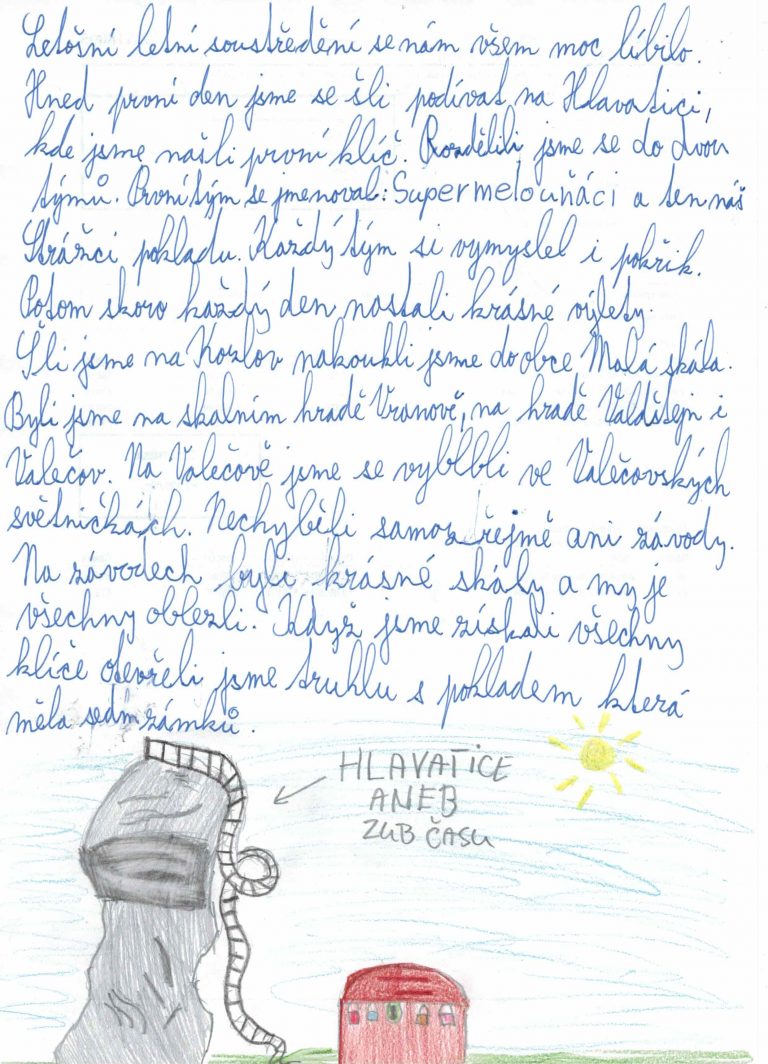 Letošní letní soustředění se nám všem moc líbilo.
Hned první den jsme se šli podívat na Hlavatici,
kde jsme našli první klíč. Rozdělili jsme se do dvou
týmů. První tým se jmenoval: Supermelouňáci a ten náš
Strážci pokladu. Každý tým si vymyslel i pokřik.
Potom skoro každý den nastali krásné výlety.
Šli jsme na Kozlov nakoukli jsme do obce Malá skála.
Byli jsme na skalním hradě Vranově, na hradě Valdštejn i
Valečov. Na Valečově jsme se vyblbli ve Valečovských
světničkách. Nechyběli samoz řejmě ani závody.
Na závodech byli krásné skály a my je
všechny oblezli. Když jsme získali všechny
klíče otevřeli jsme truhlu s pokladem která
měla sedm zámků.
HLAVATICE
ANEB
ZUB ČASU